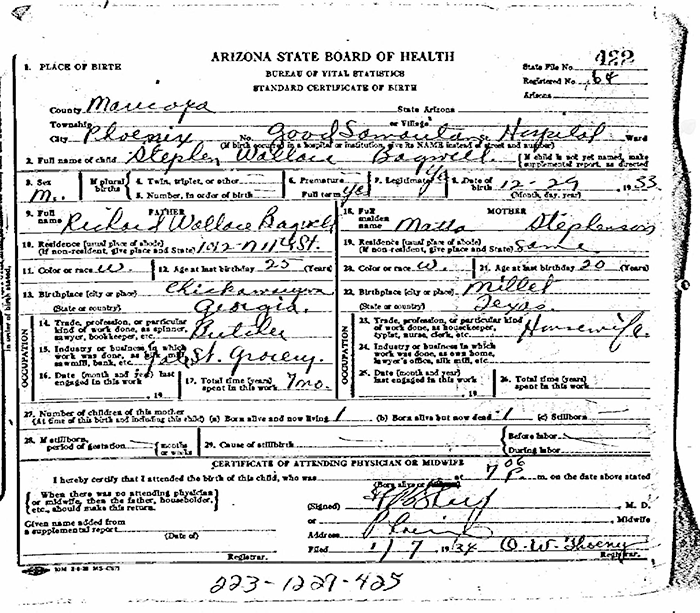 ARIZONA STATE BOARD OF HEALTH
BUREAU OF VITAL STATISTICS
STANDARD CERTIFICATE OF BIRTH
State File No. 422
Registered No. 64
Arizona
1. PLACE OF BIRTH
County Maricopa State Arizona
Township or Village
City Phoenix No. Good Samaritan Hospital Ward
(If birth occurred in a hospital or institution, give its NAME instead of street and number)
2. Full name of child Stephen Wallace Bagwell [If child is not yet named, make supplemental report, as directed
3. Sex M. If plural births 4. Twin, triplet, or other 5. Number, in order of birth 6. Premature Full term yes 7. Legitimate? Yes 8. Date of birth 12-29 1933 (Month, day, year)
FATHER
9. Full name Richard Wallace Bagwell
10. Residence (usual place of abode) (If non-resident, give place and State)
11. Color or race W. 12. Age at last birthday 25 (Years)
13. Birthplace (city or place) Chickamauga
(State or country) Georgia
OCCUPATION
14. Trade, profession, or particular kind of work done, as spinner, sawyer, bookkeeper, etc. Butcher
15. Industry or business in which work was done, as silk mill, sawmill, bank, etc. St. Grocery
16. Date (month and year) last engaged in this work , 19
17. Total time (years) spent in this work 7 mo.
MOTHER
18. Full maiden name Stephenson
19. Residence (usual place of abode) (If non-resident, give place and State) Same
20. Color or race W. 21. Age at last birthday 20 (Years)
22. Birthplace (city or place) Millet
(State or country) Texas
OCCUPATION
23. Trade, profession, or particular kind of work done, as housekeeper, typist, nurse, clerk, etc. Housewife
24. Industry or business in which work was done, as own home, lawyer's office, silk mill, etc.
25. Date (month and year) last engaged in this work , 19
26. Total time (years) spent in this work
27. Number of children of this mother
(At time of this birth and including this child) (a) Born alive and now living 1 (b) Born alive but now dead (c) Stillborn
28. If stillborn, period of gestation {months or weeks 29. Cause of stillbirth {Before labor During labor
CERTIFICATE OF ATTENDING PHYSICIAN OR MIDWIFE
I hereby certify that I attended the birth of this child, who was at 7 06 P. m. on the date above stated
(Born alive or stillborn)
{When there was no attending physician or midwife, then the father, householder, etc., should make this return.}
(Signed) , M. D.
or , Midwife
Given name added from a supplemental report
(Date of)
Address Phoenix
Filed 1/7 1934 O. W. Thoeny
Registrar. Registrar.
223-1229-425